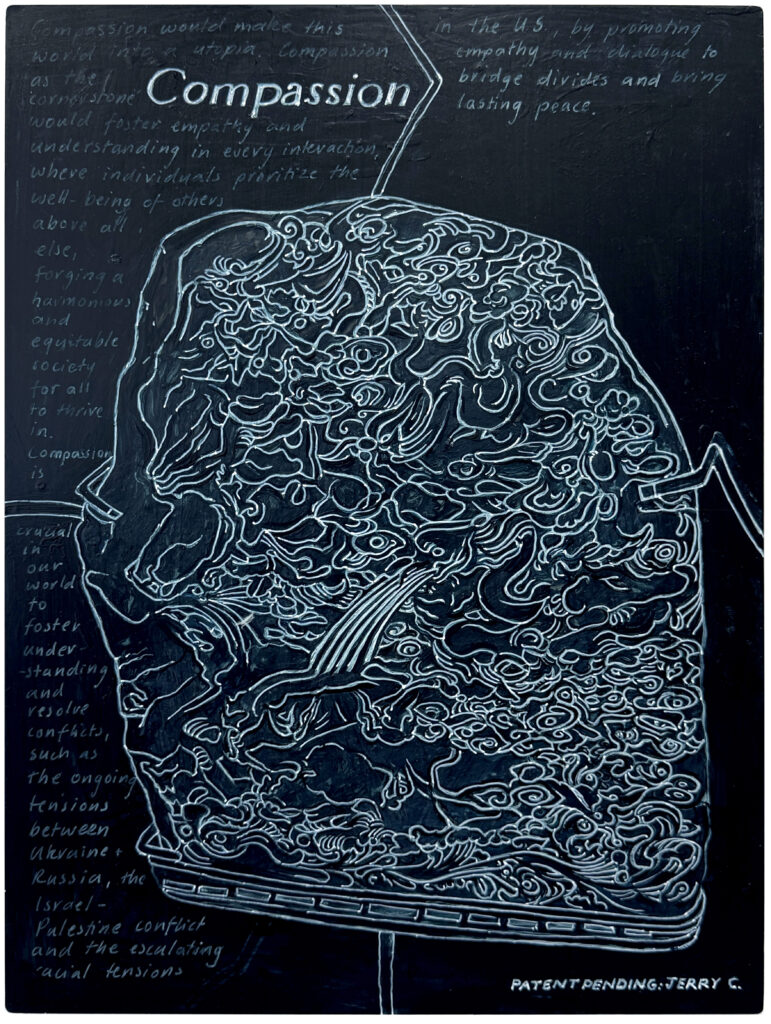 Compassion would make this
world into a utopia. Compassion
as the
cornerstone
would foster empathy and
understanding in every interaction,
where individuals prioritize the
well-being of others
above all
else,
forging a
harmonious
and
equitable
society
for all
to thrive
in.
Compassion
is
crucial
in
our
world
to
foster
under
-standing
and
resolve
conflicts,
such as
the ongoing
tensions
between
Ukraine +
Russia, the
Israel-
Palestine conflict
and the esculating
racial tensions
in the U.S., by promoting
empathy and dialogue to
bridge divides and bring
lasting peace.
Compassion
PATENT PENDING: JERRY C.